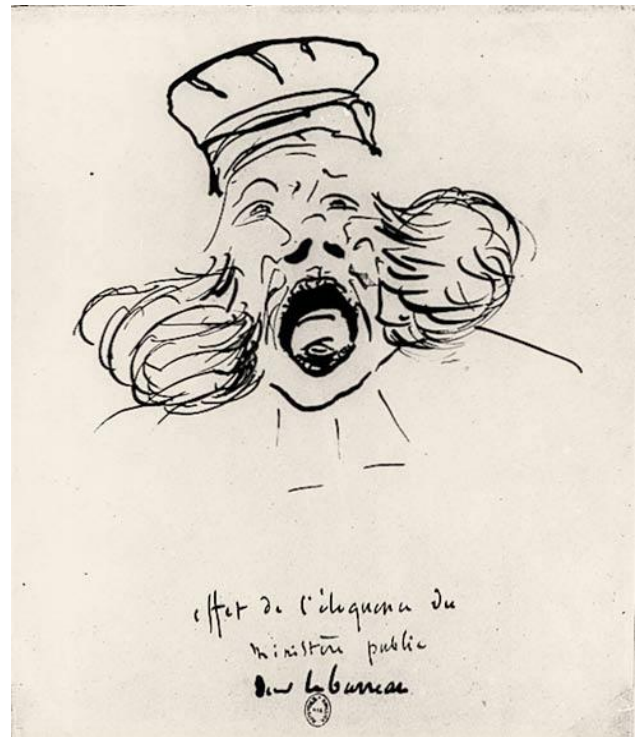 effet de l'éloquence du
ministère public
sur le barreau